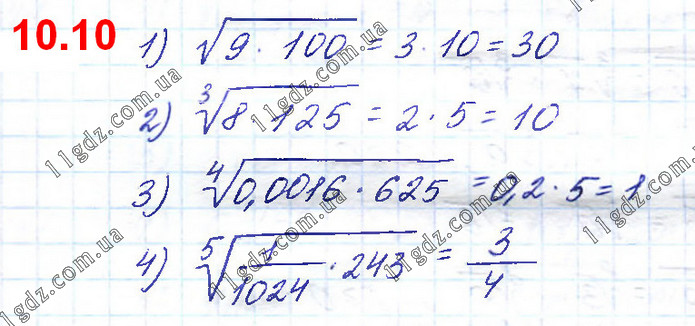 10.10
1) √9 · 100 = 3 · 10 = 30
2) ³√8 · 125 = 2 · 5 = 10
3) ⁴√0,0016 · 625 = 0,2 · 5 = 1
4) ⁵√1/1024 · 243 = 3/4
11gdz.com.ua
11gdz.com.ua
11gdz.com.ua
11gdz.com.ua
11gdz.com.ua
11gdz.com.ua
11gdz.com.ua
11gdz.com.ua